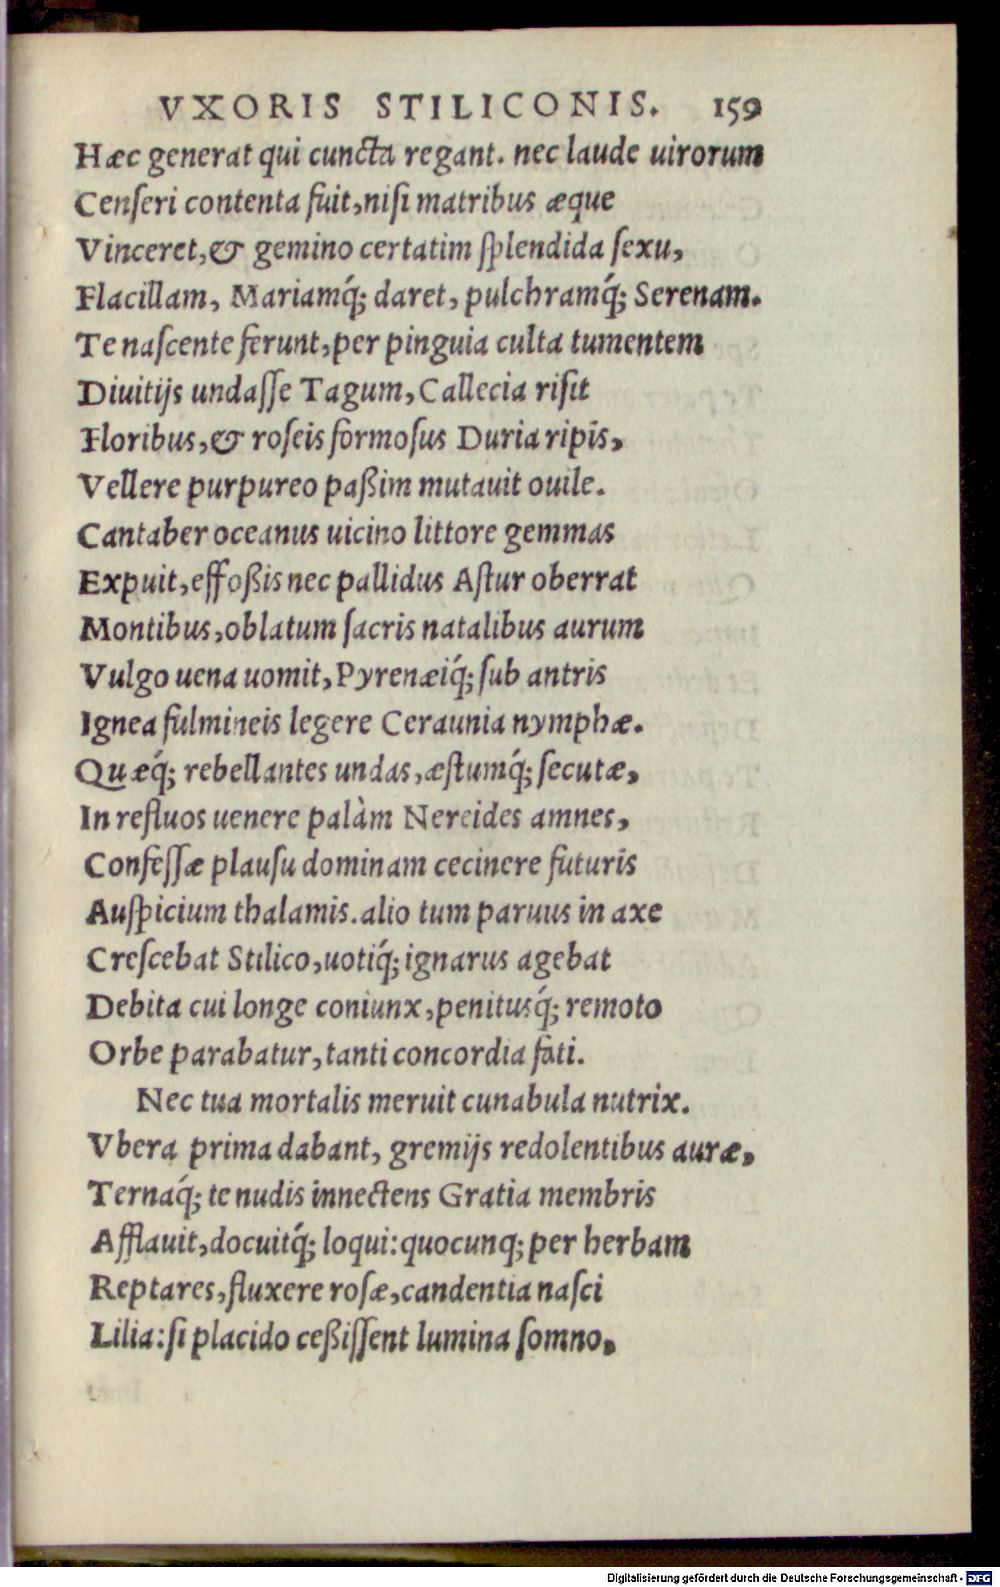 VXORIS STILICONIS. 159
Hæc generat qui cuncta regant. nec laude uirorum
Cenſeri contenta fuit,niſi matribus æque
Vinceret,& gemino certatim ſplendida ſexu,
Flacillam, Mariamq́; daret, pulchramq́; Serenam.
Te naſcente ferunt,per pinguia culta tumentem
Diuitijs undaſſe Tagum,Callecia riſit
Floribus,& roſeis formoſus Duria ripis,
Vellere purpureo paßim mutauit ouile.
Cantaber oceanus uicino littore gemmas
Expuit,effoßis nec pallidus Aſtur oberrat
Montibus,oblatum ſacris natalibus aurum
Vulgo uena uomit,Pyrenæiq́; ſub antris
Ignea fulmineis legere Ceraunia nymphæ.
Quæq́; rebellantes undas,æſtumq́; ſecutæ,
In refluos uenere palàm Nereides amnes,
Confeſſæ plauſu dominam cecinere futuris
Auſpicium thalamis.alio tum paruus in axe
Creſcebat Stilico,uotiq́; ignarus agebat
Debita cui longe coniunx,penitusq́; remoto
Orbe parabatur,tanti concordia fati.
Nec tua mortalis meruit cunabula nutrix.
Vbera prima dabant, gremijs redolentibus auræ,
Ternaq́; te nudis innectens Gratia membris
Afflauit,docuitq́; loqui:quocunq; per herbam
Reptares,fluxere roſæ,candentia naſci
Lilia:ſi placido ceßiſſent lumina ſomno,
Digitalisierung gefördert durch die Deutsche Forschungsgemeinschaft - DFG